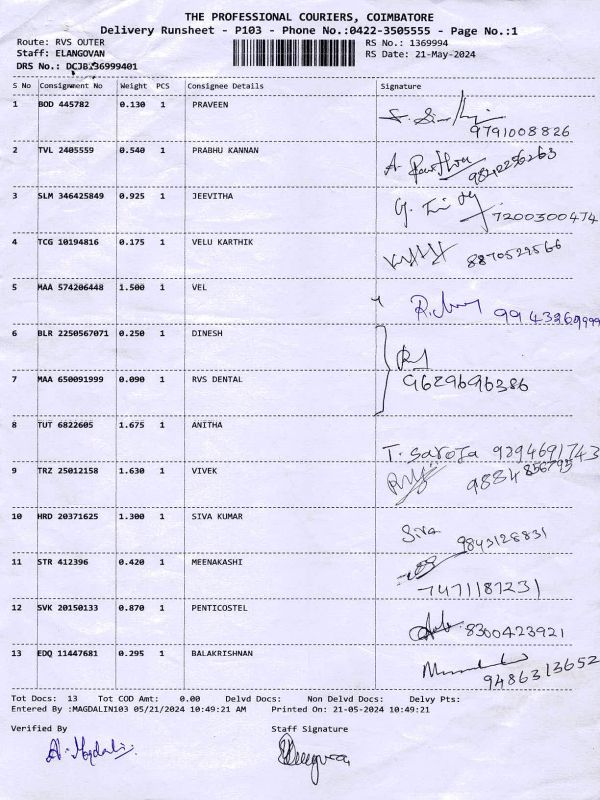 THE PROFESSIONAL COURIERS, COIMBATORE
Delivery Runsheet - P103 - Phone No.:0422-3505555 - Page No.:1
Route: RVS OUTER RS No.: 1369994
Staff: ELANGOVAN RS Date: 21-May-2024
DRS No.: DCJB136999401
S No Consignment No Weight PCS Consignee Details Signature
1 BOD 445782 0.130 1 PRAVEEN
9791008826
2 TVL 2405559 0.540 1 PRABHU KANNAN
9842256263
3 SLM 346425849 0.925 1 JEEVITHA
7200300474
4 TCG 10194816 0.175 1 VELU KARTHIK
8870529566
5 MAA 574206448 1.500 1 VEL
9943269999
6 BLR 2250567071 0.250 1 DINESH
7 MAA 650091999 0.090 1 RVS DENTAL
9629696386
8 TUT 6822605 1.675 1 ANITHA
T. Saroja 9294691743
9 TRZ 25012158 1.630 1 VIVEK
9884856795
10 HRD 20371625 1.300 1 SIVA KUMAR
Siva 9843128831
11 STR 412396 0.420 1 MEENAKASHI
7471187231
12 SVK 20150133 0.870 1 PENTICOSTEL
8300423921
13 EDQ 11447681 0.295 1 BALAKRISHNAN
9486313652
Tot Docs: 13 Tot COD Amt: 0.00 Delvd Docs: Non Delvd Docs: Delvy Pts:
Entered By :MAGDALIN103 05/21/2024 10:49:21 AM Printed On: 21-05-2024 10:49:21
Verified By Staff Signature